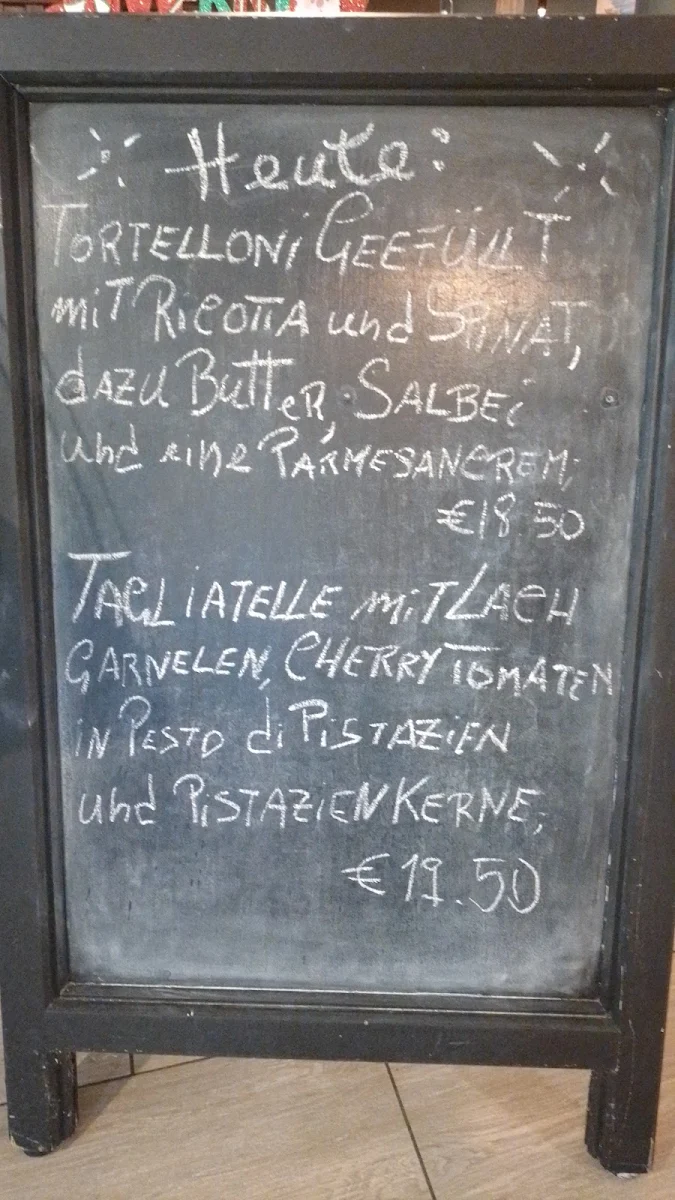 Heute:
TORTELLONI GEEFÜLLT
miT RicoTTA und SPiNAT,
dAZU ButteR, SALBEi
und eine PARMESANCREM;
€18.50
TAGLiATELLE miT LACH
GARNELEN, CHERRY TOMATEN
iN PESTO di PiSTAZiEN
und PiSTAZiENKERNE;
€19.50